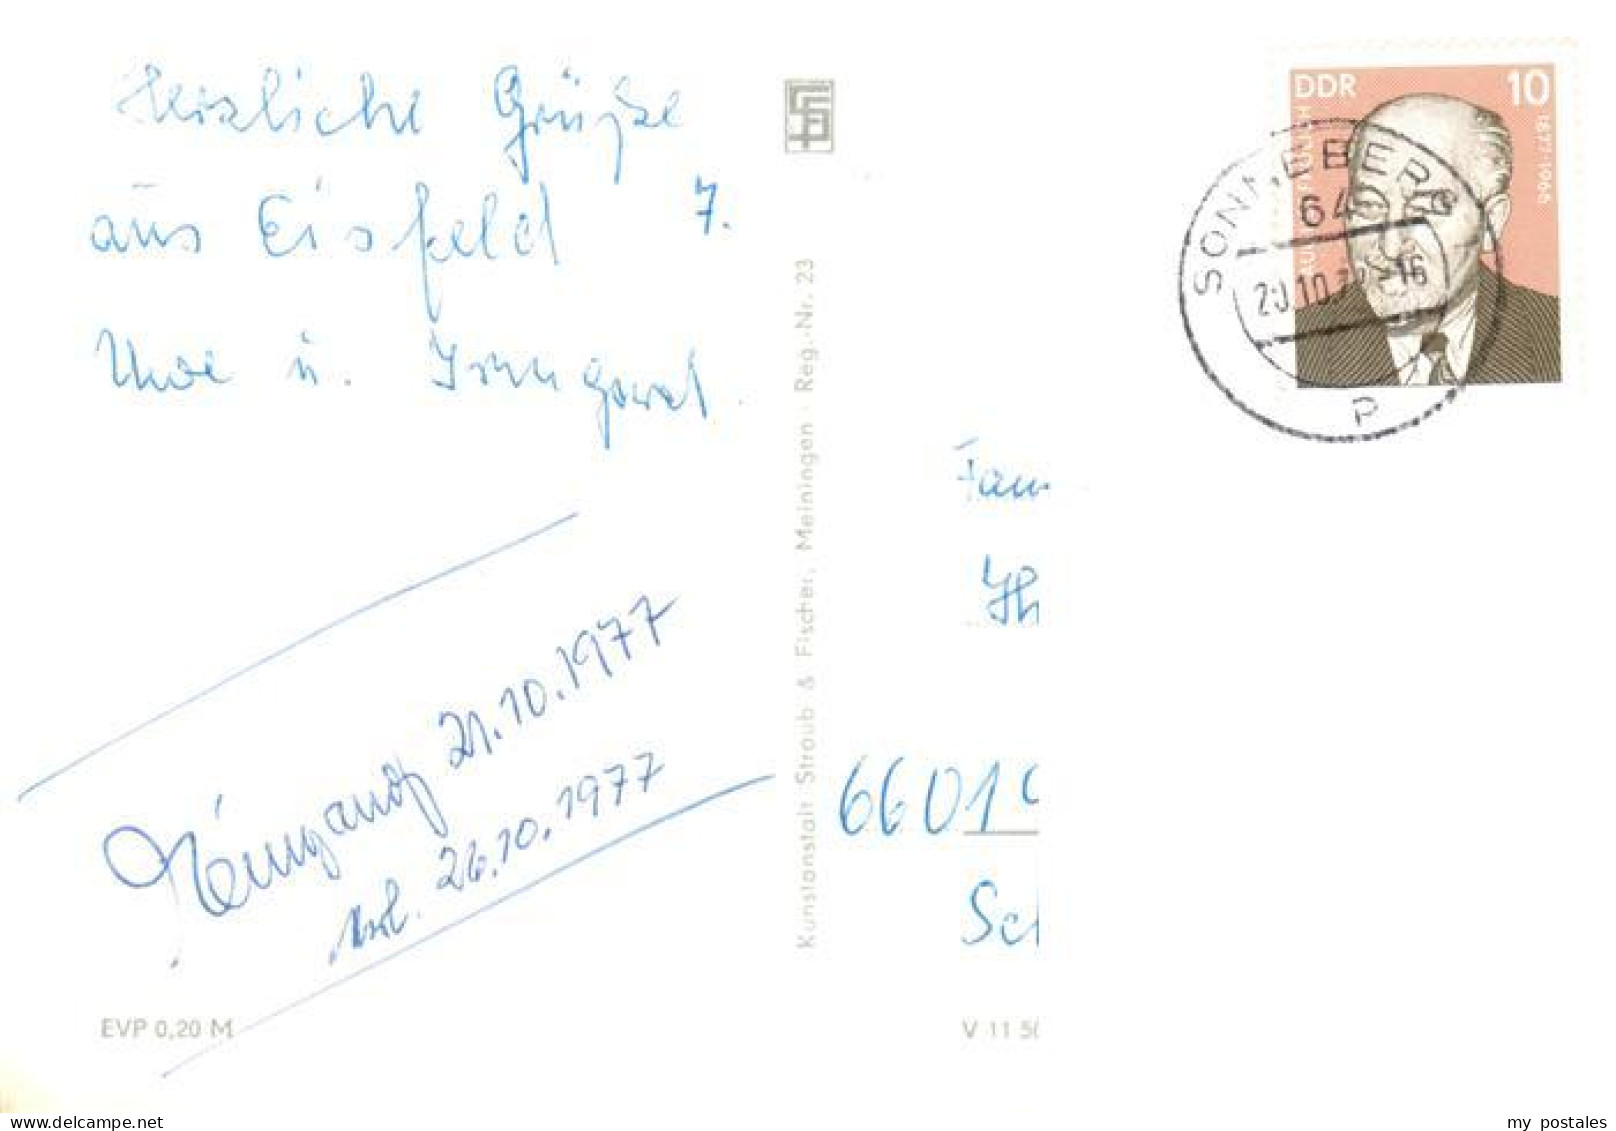 Herzliche Grüße
aus Eisfeld 7.
Uwe u. Irmgard.
21.10.1977
26.10.1977
EVP 0,20 M
Kunstanstalt Straub & Fischer, Meiningen · Reg.-Nr. 23
DDR 10
1877-1966
SONNEBERG
64
20.10.77-16
P
Fam
Th
6601
Sch
V 11 50
www.delcampe.net
my_postales